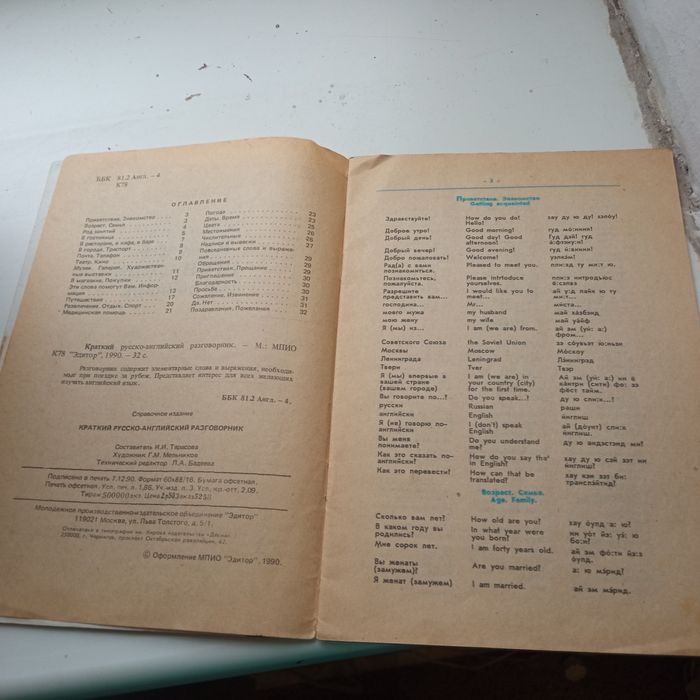 ББК 81.2 Англ. – 4
К78
ОГЛАВЛЕНИЕ
Приветствия, Знакомство 3
Возраст. Семья 3
Род занятий 4
В гостинице 5
В ресторане, в кафе, в баре 7
В городе. Транспорт 8
Почта. Телефон 9
Театр. Кино 10
Музеи. Галереи. Художествен-
ные выставки 11
В магазине. Покупки 12
Эти слова помогут Вам. Инфор-
мация 13
Путешествие 17
Развлечения. Отдых. Спорт 20
Медицинская помощь 21
Погода 23
Даты. Время 23
Цвета 25
Местоимения 26
Числительные 26
Надписи и вывески 27
Повседневные слова и выраже-
ния
Обращения 29
Приветствия. Прощание 29
Приглашения 30
Благодарность 30
Просьба 30
Сожаление. Извинение 31
Да. Нет 31
Поздравления. Пожелания 32
Краткий русско-английский разговорник. – М.: МПИО
К78 "Эдитор", 1990. – 32 с.
Разговорник содержит элементарные слова и выражения, необходи-
мые при поездке за рубеж. Представляет интерес для всех желающих
изучать английский язык.
ББК 81.2 Англ. – 4.
Справочное издание
КРАТКИЙ РУССКО-АНГЛИЙСКИЙ РАЗГОВОРНИК
Составитель И.И. Тарасова
Художник Г.М. Мельников
Технический редактор Л.А. Бадеева
Подписано в печать 7.12.90. Формат 60х88/16. Бумага офсетная.
Печать офсетная. Усл. печ. л. 1,86. Уч.-изд. л. 3. Усл. кр.-отт. 2,09.
Тираж 500000 экз. Цена 2р.50
Молодежное производственно-издательское объединение "Эдитор"
119021 Москва, ул. Льва Толстого, д. 5/1.
Отпечатано в типографии им. Кирова издательства «Десна»
250000, г. Чернигов, проспект Октябрьской революции,
© Оформление МПИО "Эдитор", 1990.
– 3 –
Приветствия. Знакомство
Getting acquainted
Здравствуйте! How do you do! хау ду ю ду!
Hello!
Доброе утро! Good morning! гуд мо:нинг!
Добрый день! Good day! Good гуд дэй! гуд
afternoon!
Добрый вечер! Good evening! гуд и:внинг!
Добро пожаловать! Welcome! уэлкэм!
Рад(а) с вами Pleased to meet you. пли:зд ту ми:т ю.
познакомиться.
Познакомьтесь, Please introduce
пожалуйста. yourselves.
Разрешите I would like you to ай у:д лайк ю ту
представить вам... meet... ми:т...
господина... Mr... миста...
моего мужа my husband май хазбэнд
мою жену my wife май уайф
Я (мы) из... I am (we are) from. ай эм (уй: а:)
фром...
Советского Союза the Soviet Union
Москвы Moscow Мόскоу
Ленинграда Leningrad Лэнинград
Твери Tver Твэр
Я (мы) впервые в I am (we are) in Ай эм (уй: а:) ин ё
вашей стране your country (city) кантри (сити) фо: зэ
(вашем городе) for the first time. фёст тайм.
Вы говорите по...? Do you speak...? ду ю спи:к...?
русски Russian рашн
английски English инглиш
Я (не) говорю по- I (don't) speak ай (доунт) спи:к
английски English инглиш.
Вы меня Do you understand ду ю андэстэнд ми?
понимаете? me?
Как это сказать по- How do you say that хау ду ю сэй зэт ин
английски? in English? инглиш?
Как это перевести? How can that be хау кэн зэт би:
translated? трэнслэйтид?
Возраст. Семья.
Age. Family.
Сколько вам лет? How old are you? хау оулд а: ю?
В каком году вы In what year were ин уот йэ: уэ: ю
родились? you born? бо:н?
Мне сорок лет. I am forty years old. ай эм фо:ти йэ:з
оулд.
Вы женаты Are you married? а: ю мэрид?
(замужем)?
Я женат (замужем) I am married. ай эм мэрид.